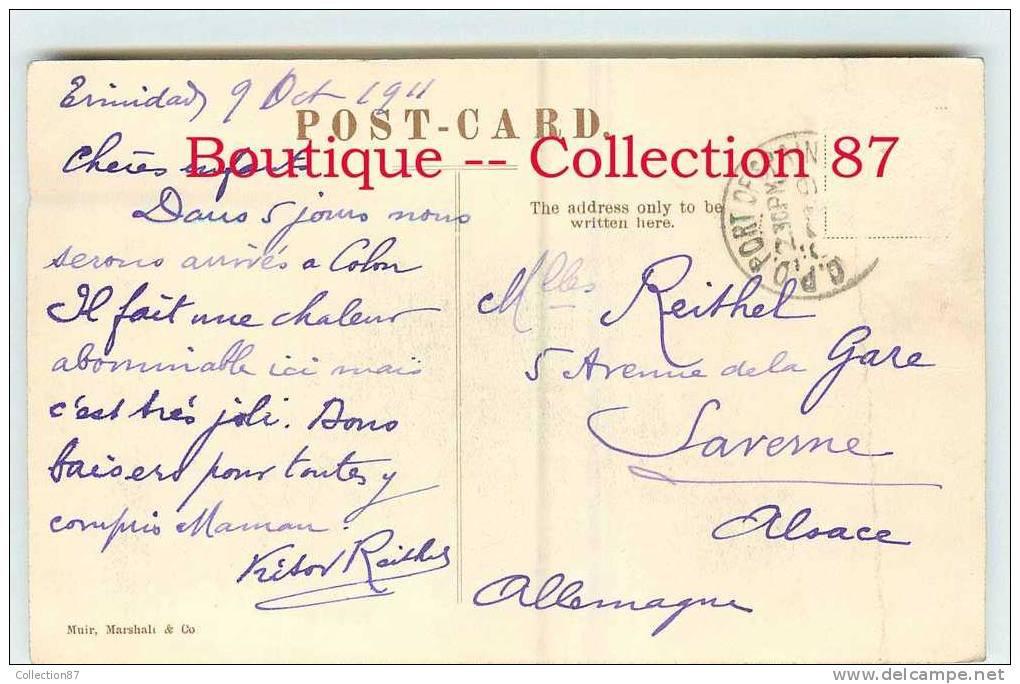 Trinidad, 9 Oct 1911
POST-CARD.
Boutique -- Collection 87
Chères enfants
Dans 5 jours nous
serons arrivés a Colon
Il fait une chaleur
abominable ici mais
c'est très joli. Bons
baisers pour toutes y
compris Maman.
Reithel
Muir, Marshall & Co
The address only to be
written here.
G.P.O. PORT OF
2.30PM
Mlles Reithel
5 Avenue de la Gare
Saverne
Alsace
Allemagne
Collection87
www.delcampe.net